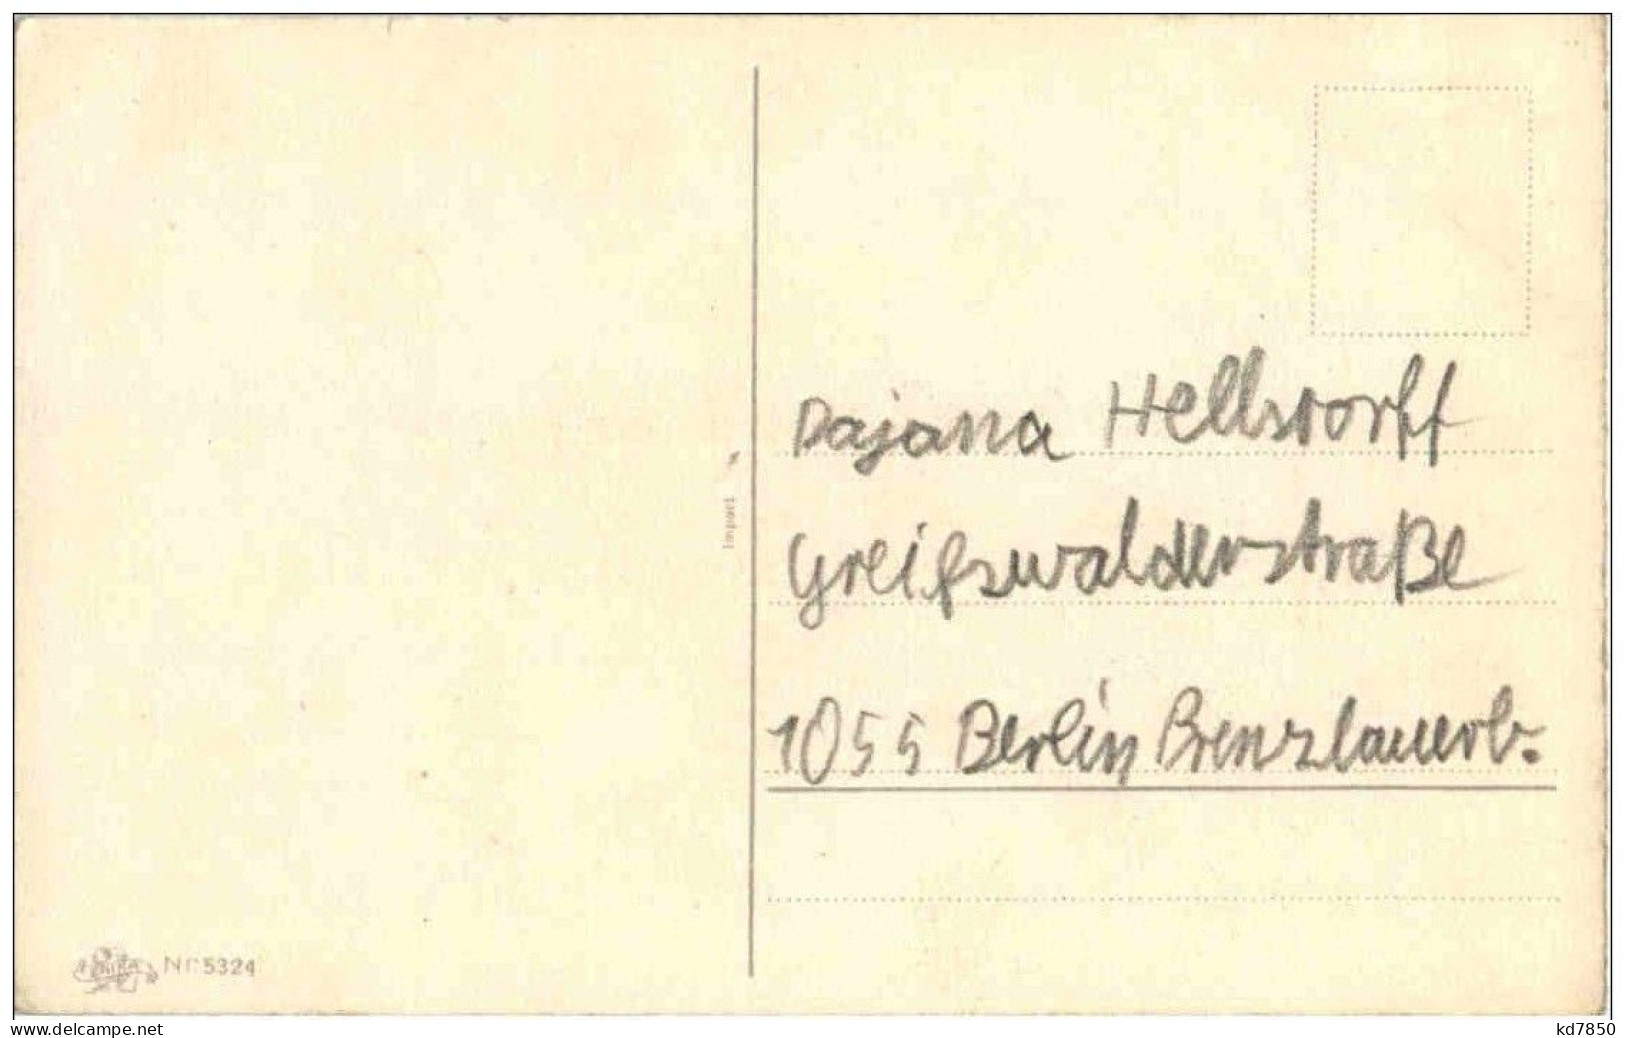 Dajana Hellsdorff
Greifswalderstraße
1055 Berlin Prenzlauerb.
Import
Nr 5324
www.delcampe.net
kd7850